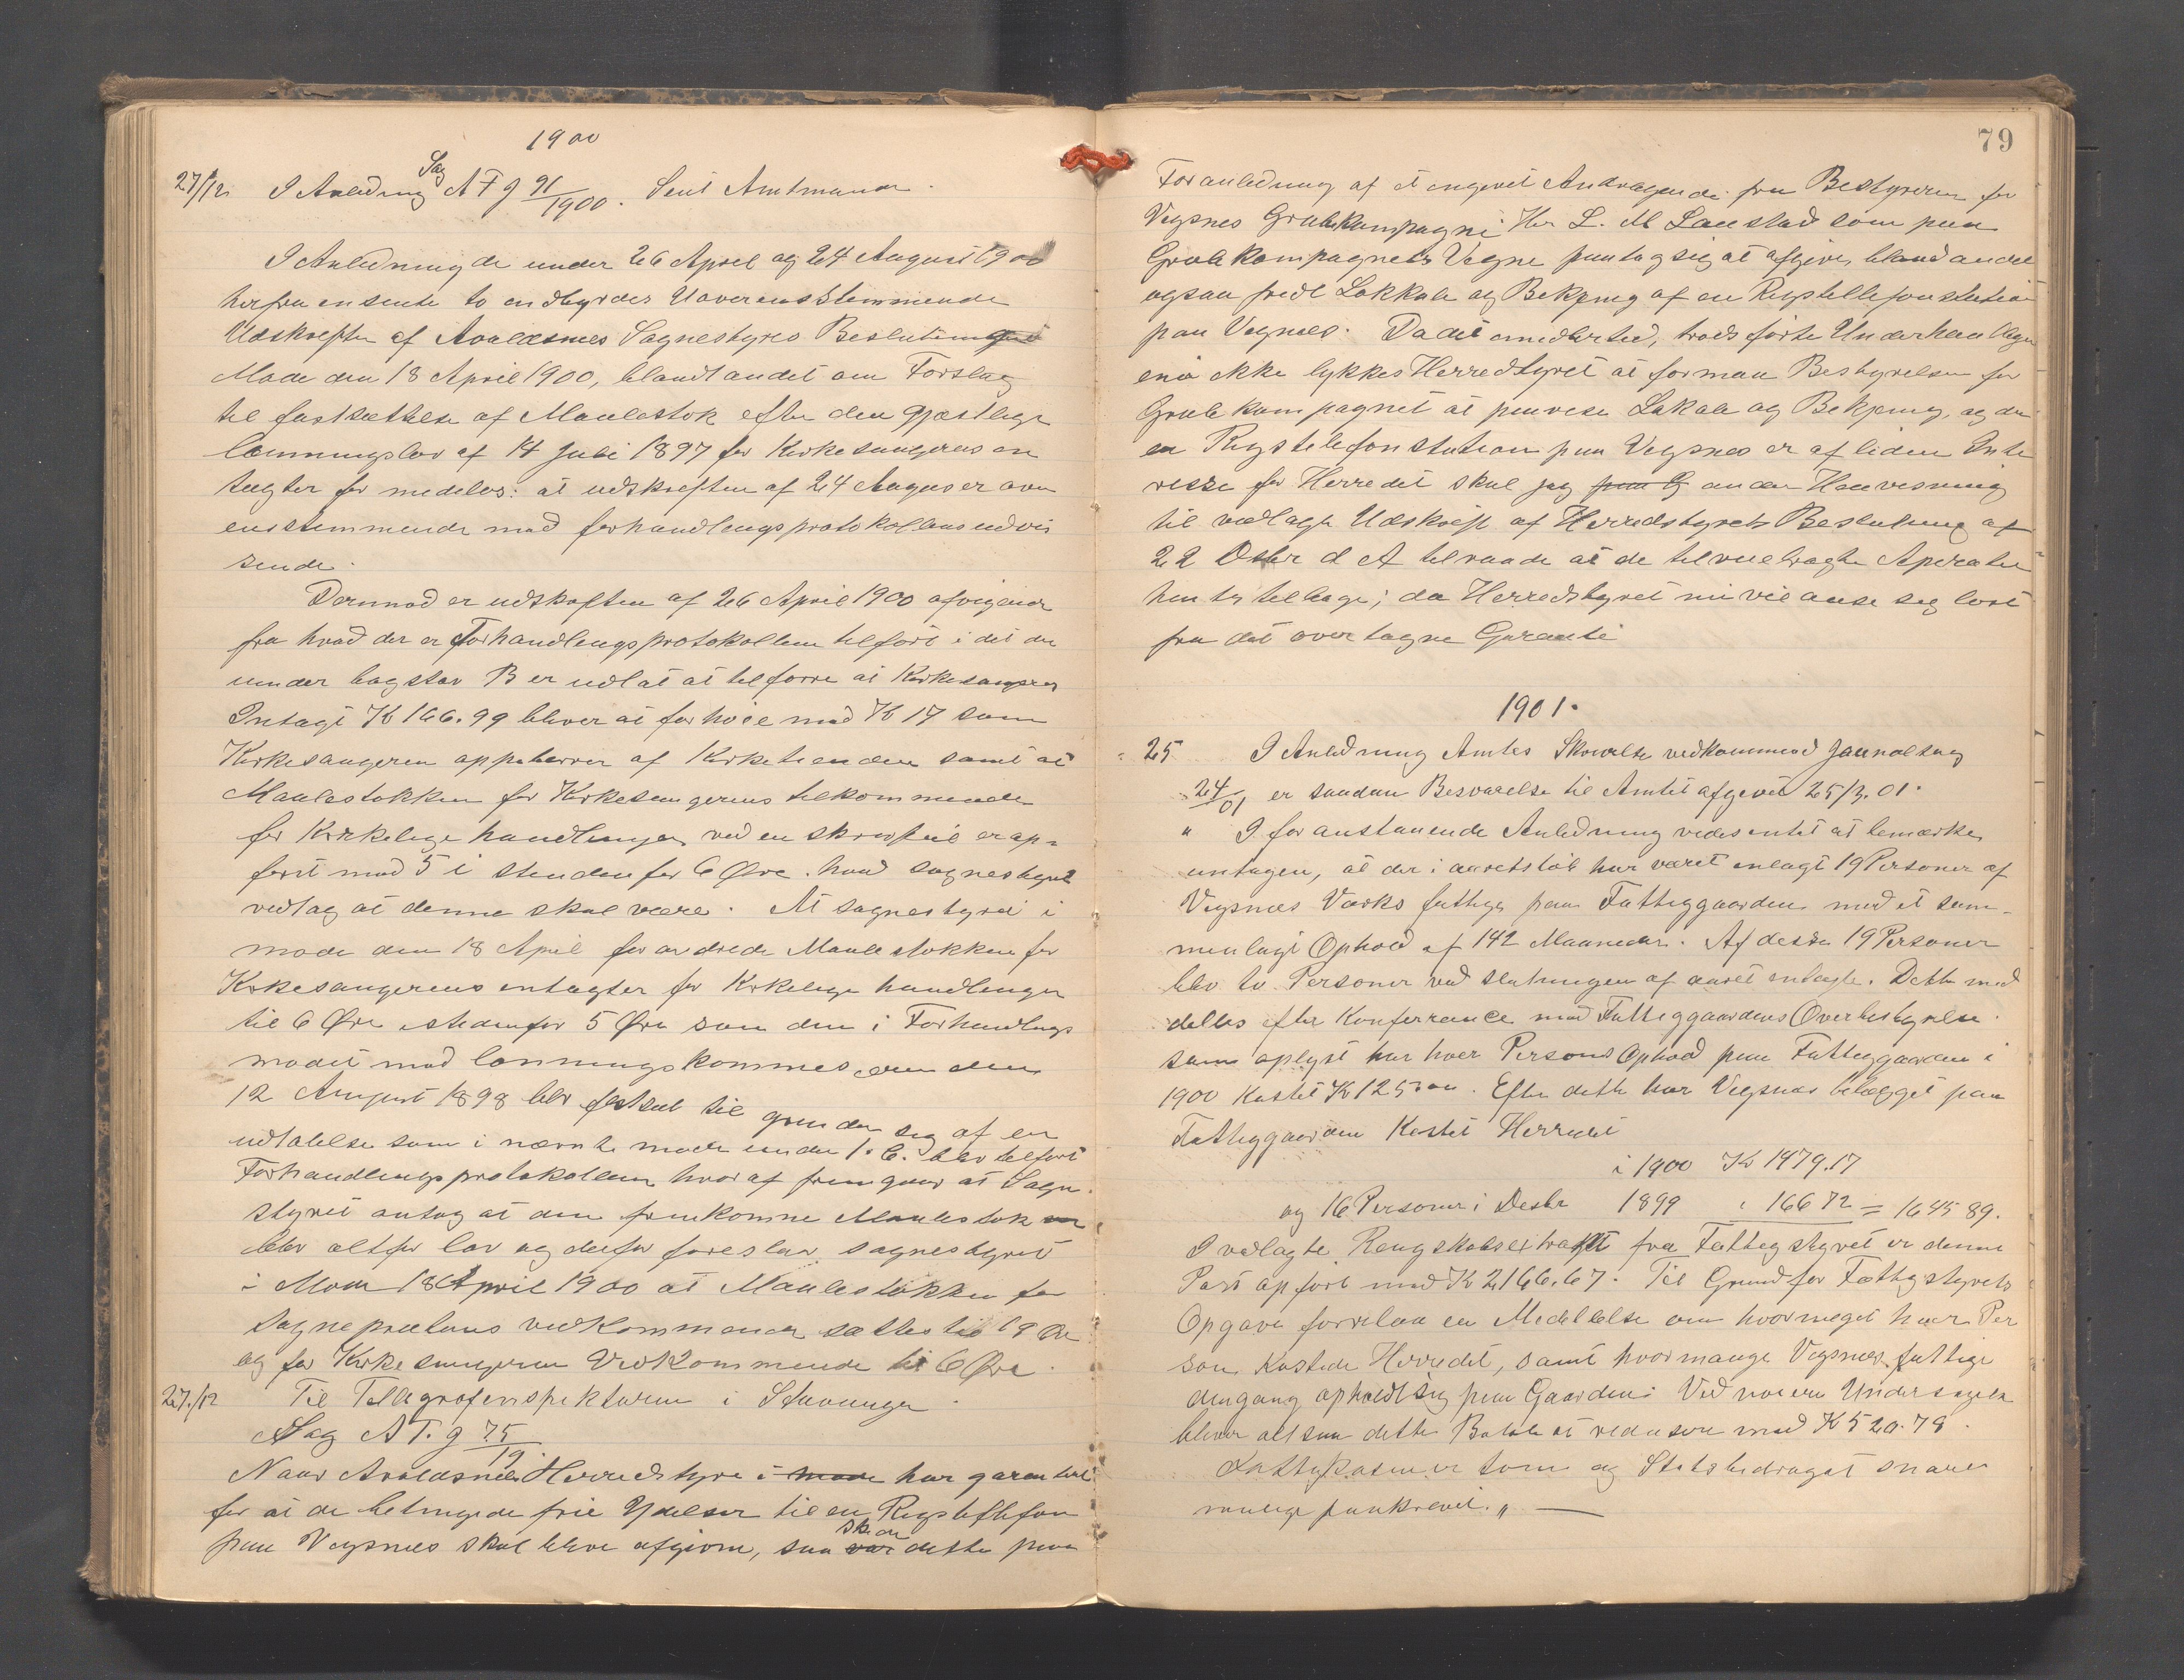 1900
27/12 I Anledning Sag A F g 91/1900. Sent Amtmanden.
I Anledning de under 26 April og 24 August 1900
herfra ensente to endbyrdes Uoverensstemmende
Udskrefter af Avaldsnes Sognestyres Beslutning
Møde den 18 April 1900, blandt andet om Forslag
til fastsættelse af Maalestok efter den gjæstlige
lønningslov af 14 Juli 1897 for Kirkesangerens en
tægter for medeles: at udskreften af 24 August er over
ensstemmende med forhandlengsprotokollens udvi
sende.
Dermod er udskreften af 26 April 1900 afvigende
fra hvad der er Forhandlengsprotokollen telført i det der
under bogstav B er udlat at telførre at Kirkesangeren
Indtægt K 166.99 bliver at forhøie med K 17 som
Kirkesangeren oppebærrer af Kirketienden samt at
Maalestokken for Kirkesangerens telkommende
for Kirkelige handlinger ved en skrivfeil er op-
ført med 5 i stendenfor 6 Øre. hvad sognestyret
vedtog at denne skal være. At sognestyret i
møde den 18 April forandrede Maalestokken for
Kirkesangerens entægter for Kirkelige handlenger
til 6 Øre istedenfor 5 Øre som den i Forhandlings
mødet med lønningskommissionen den
12 August 1898 blev festsat til grunder sig af en
udtalelse som i nævnte møde under 1.6. blev telført
Forhandlingsprotokollen hvoraf fremgaar at Sogne
styret antog at den fremkomne Maalestok
blev altfor lav og derfor foreslaar sognestyret
i Møde 18 April 1900 at Maalestokken for
Sogneprestens vedkommende sættes til 19 Øre
og for Kirkesangeren Vedkommende til 6 Øre.
27./12 Til Telegrafenspektøren i Stavanger.
Sag A T. g 75/19
Naar Avaldsnes Herredstyre i møde har garanteret
for at de betingede frie Ydelser til en Rigstelefon
paa Vigsnes skal bleve afgivne, saa skeer dette paa
79
Foranledning af et engevet Andragende fra Bestyreren for
Vigsnes Grubekompagni Hr L. M Lanestad som paa
Grubekompagnets Vegne paatog sig at afgive, bland andet
ogsaa fredt Lokkale og Betjening af en Rigstellefonstation
paa Vigsnes. Da det emedlertid, trods førte Underhandlinger
end ikke lykkes Herredstyret at formaa Bestyrelsen for
Grubekompagnet at paavese Lokale og Betjening, og da
en Rigstelefonstation paa Vigsnes er af liden Inte
resse for Herredet skal jeg under Henvesning
til vedlagte Udskreft af Herredstyrets Beslutning af
22 Dsbr d A tilraade at de telveiebragte Aperater
hentes telbage; da Herredstyret nu vil anse seg løst
fra det overtagne Garanti
1901.
25 I Anledning Amtes Skrivelse vedkommend Jaurnalsag
24/01 er saadan Besvarelse til Amtet afgevet 25/3.01.
" I foranstaaende Anledning vides entet at bemærke
untagen, at der i aaretsløb har været enlagt 19 Personer af
Vigsnes Værks fattige paa Fattiggaarden med et sam-
menlagt Ophold af 142 Maaneder. Af disse 19 Personer
blev to Personer ved slutningen af aaret entagte. Dette med
delles efter Konferrance med Fattiggaardens Overbestyrelse
som oplyst har hver Persons Ophold paa Fattiggaarden i
1900 Kostet K 125.00. Efter dette har Vigsnes belægget paa
Fattiggaarden Kostet Herredet
i 1900 K 1479.17
og 16 Personer i Desbr 1899 " 166 72 = 1645 89.
I vedlagte Regnskabsextrakt fra Fattigstyret er denne
Post opført med K 2166.67. Til Grund for Fattigstyrets
Opgave forrelaa en Meddelelse om hvormeget hver Per
son Kostede Herredet, samt hvormange Vigsnes fattige
dengang opholdt sig paa Gaarden. Ved noiere Undersøgelse
bliver altsaa dette Beløb at redusere med K 520.78.
Fattigkassen er tom og Statsbedraget snarest
mulige paakrevet. " —